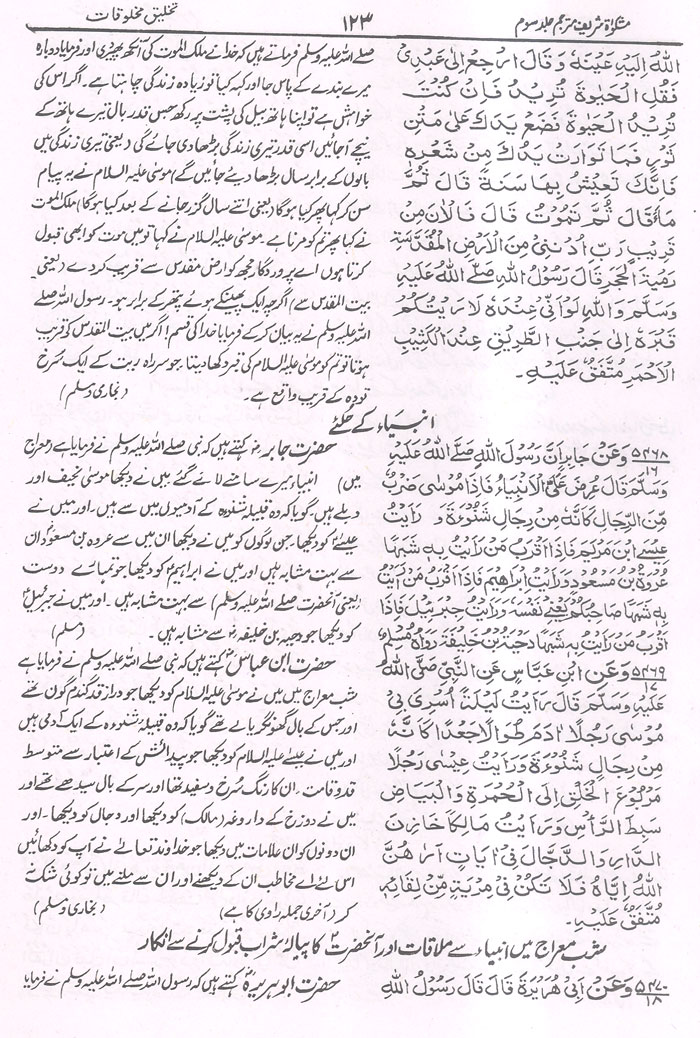 مشکوٰۃ شریف مترجم جلد سوم
۱۲۳
تخلیق مخلوقات
اللهُ إِلَيْهِ عَيْنَهُ وَقَالَ ارْجِعْ إِلَى عَبْدِي
فَقُلِ الْحَيٰوةَ تُرِيدُ فَإِنْ كُنْتَ
تُرِيدُ الْحَيٰوةَ فَضَعْ يَدَكَ عَلَى مَتْنِ
ثَوْرٍ فَمَا تَوَارَتْ يَدُكَ مِنْ شَعْرِهِ
فَإِنَّكَ تَعِيشُ بِهَا سَنَةً قَالَ ثُمَّ
مَهْ قَالَ ثُمَّ تَمُوتُ قَالَ فَالْآنَ مِنْ
قَرِيبٍ رَبِّ أَدْنِنِي مِنَ الْأَرْضِ الْمُقَدَّسَةِ
رَمْيَةً بِحَجَرٍ قَالَ رَسُولُ اللهِ صَلَّى اللهُ عَلَيْهِ
وَسَلَّمَ وَاللهِ لَوْ أَنِّي عِنْدَهُ لَأَرَيْتُكُمْ
قَبْرَهُ إِلَى جَنْبِ الطَّرِيقِ عِنْدَ الْكَثِيبِ
الْأَحْمَرِ مُتَّفَقٌ عَلَيْهِ۔
صلے اللہ علیہ وسلم فرماتے ہیں کہ خدا نے ملک الموت کی آنکھ پھیر دی اور فرمایا دوبارہ
میرے بندے کے پاس جا اور کہہ کیا تو زیادہ زندگی چاہتا ہے۔ اگر اس کی
خواہش ہے تو اپنا ہاتھ بیل کی پشت پر رکھ جس قدر بال تیرے ہاتھ کے
نیچے آجائیں اسی قدر تیری زندگی بڑھا دی جائے گی (یعنی تیری زندگی میں
بالوں کے برابر سال بڑھا دیئے جائیں گے) موسیٰ علیہ السلام نے یہ پیام
سن کر کہا پھر کیا ہوگا (یعنی اتنے سال گزر جانے کے بعد کیا ہوگا) ملک الموت
نے کہا پھر تم کو مرنا ہے۔ موسیٰ علیہ السلام نے کہا تو میں موت کو ابھی قبول
کرتا ہوں اے پروردگار مجھ کو ارض مقدس سے قریب کر دے (یعنی
بیت المقدس سے) اگرچہ ایک پھینکے ہوئے پتھر کے برابر ہو۔ رسول اللہ صلے
اللہ علیہ وسلم نے یہ بیان کر کے فرمایا خدا کی قسم اگر میں بیت المقدس کے قریب
ہوتا تو تم کو موسیٰ علیہ السلام کی قبر دکھا دیتا۔ جو سر راہ ریت کے ایک سرخ
تودہ کے قریب واقع ہے۔ (بخاری ومسلم)
انبیاء کے حلئے
۵۴۶۸/۱۶ وَعَنْ جَابِرٍ أَنَّ رَسُولَ اللهِ صَلَّى اللهُ عَلَيْهِ
وَسَلَّمَ قَالَ عُرِضَ عَلَيَّ الْأَنْبِيَاءُ فَإِذَا مُوسٰى ضَرْبٌ
مِّنَ الرِّجَالِ كَأَنَّهُ مِنْ رِجَالِ شَنُوْءَةَ وَ رَأَيْتُ
عِيسَى ابْنَ مَرْيَمَ فَإِذَا أَقْرَبُ مَنْ رَأَيْتُ بِهِ شَبَهًا
عُرْوَةُ بْنُ مَسْعُودٍ وَرَأَيْتُ إِبْرَاهِيمَ فَإِذَا أَقْرَبُ مَنْ رَأَيْتُ
بِهِ شَبَهًا صَاحِبُكُمْ يَعْنِي نَفْسَهُ وَرَأَيْتُ جِبْرَئِيلَ فَإِذَا
أَقْرَبُ مَنْ رَأَيْتُ بِهِ شَبَهًا دِحْيَةُ بْنُ خَلِيفَةَ رَوَاهُ مُسْلِمٌ
حضرت جابرؓ کہتے ہیں کہ نبی صلے اللہ علیہ وسلم نے فرمایا ہے (معراج
میں) انبیاء میرے سامنے لائے گئے میں نے دیکھا موسیٰ نحیف اور
دبلے ہیں۔ گویا کہ وہ قبیلہ شنوءہ کے آدمیوں میں سے ہیں۔ اور میں نے
عیسےٰؑ کو دیکھا۔ جن لوگوں کو میں نے دیکھا ان میں سے عروہ بن مسعودؓ ان
سے بہت مشابہ ہیں اور میں نے ابراہیمؑ کو دیکھا جو تمہارے دوست
(یعنی آنحضرت صلے اللہ علیہ وسلم) سے بہت مشابہ ہیں۔ اور میں نے جبرئیلؑ
کو دیکھا جو دحیہ بن خلیفہؓ سے مشابہ ہیں۔ (مسلم)
۵۴۶۹/۱۷ وَعَنْ ابْنِ عَبَّاسٍ عَنِ النَّبِيِّ صَلَّى اللهُ
عَلَيْهِ وَسَلَّمَ قَالَ رَأَيْتُ لَيْلَةَ أُسْرِيَ بِي
مُوسٰى رَجُلًا اٰدَمَ طُوَالًا جَعْدًا كَأَنَّهُ
مِنْ رِجَالِ شَنُوْءَةَ وَرَأَيْتُ عِيسٰى رَجُلًا
مَرْبُوعَ الْخَلْقِ إِلَى الْحُمْرَةِ وَالْبَيَاضِ
سَبِطَ الرَّأْسِ وَرَأَيْتُ مَالِكًا خَازِنَ
النَّارِ وَالدَّجَّالَ فِي اٰيَاتٍ أَرَاهُنَّ
اللهُ إِيَّاهُ فَلَا تَكُنْ فِي مِرْيَةٍ مِّنْ لِقَائِهِ
مُتَّفَقٌ عَلَيْهِ۔
حضرت ابن عباسؓ کہتے ہیں کہ نبی صلے اللہ علیہ وسلم نے فرمایا ہے
شب معراج میں میں نے موسیٰ علیہ السلام کو دیکھا جو دراز قد گندم گون تھے
اور جس کے بال گھونگریالے تھے گویا کہ وہ قبیلہ شنوءہ کے ایک آدمی ہیں
اور میں نے عیسےٰ علیہ السلام کو دیکھا جو پیدائش کے اعتبار سے متوسط
قد و قامت۔ ان کا رنگ سرخ و سفید تھا اور سر کے بال سیدھے تھے اور
میں نے دوزخ کے داروغہ (مالک) کو دیکھا اور دجال کو دیکھا۔ اور
ان دونوں کو ان علامات میں دیکھا جو خداوند تعالےٰ نے آپ کو دکھائیں
اس لئے اے مخاطب ان کے دیکھنے اور ان سے ملنے میں تو کوئی شک نہ
کر (آخری جملہ راوی کا ہے) (بخاری ومسلم)
شب معراج میں انبیاء سے ملاقات اور آنحضرتؐ کا پیالۂ شراب قبول کرنے سے انکار
۵۴۷۰/۱۸ وَعَنْ أَبِي هُرَيْرَةَ قَالَ قَالَ رَسُولُ اللهِ
حضرت ابوہریرہؓ کہتے ہیں کہ رسول اللہ صلے اللہ علیہ وسلم نے فرمایا